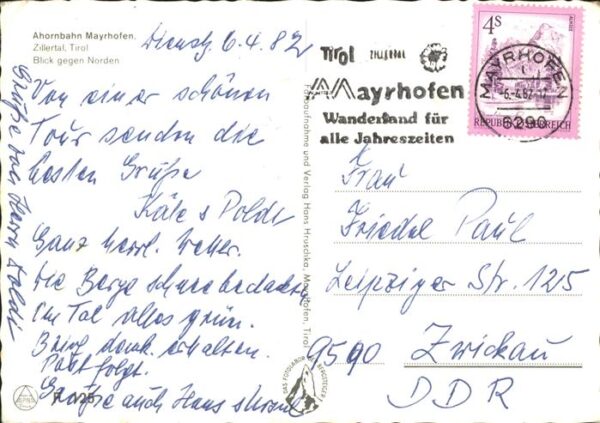 Ahornbahn Mayrhofen,
Zillertal, Tirol
Blick gegen Norden
Dienstg 6.4.82
Von einer schönen
Tour senden die
besten Grüße
Käte & Poldi
Ganz herrl. Wetter.
Die Berge schneebedeckt
Im Tal alles grün.
Brief dank. erhalten.
Post folgt.
Grüße auch Hans
Grüße von Herrn Poldi
R 125
Fotoaufnahme und Verlag Hans Hruschka, Mayrhofen, Tirol
DAS FOTOLABOR BERGSTEIGER
Tirol ZILLERTAL
Mayrhofen
Wanderland für
alle Jahreszeiten
MAYRHOFEN
-6.-4.82-17
6290
4S
REPUBLIK ÖSTERREICH
Frau
Friedel Paul
Leipziger Str. 125
9590 Zwickau
DDR